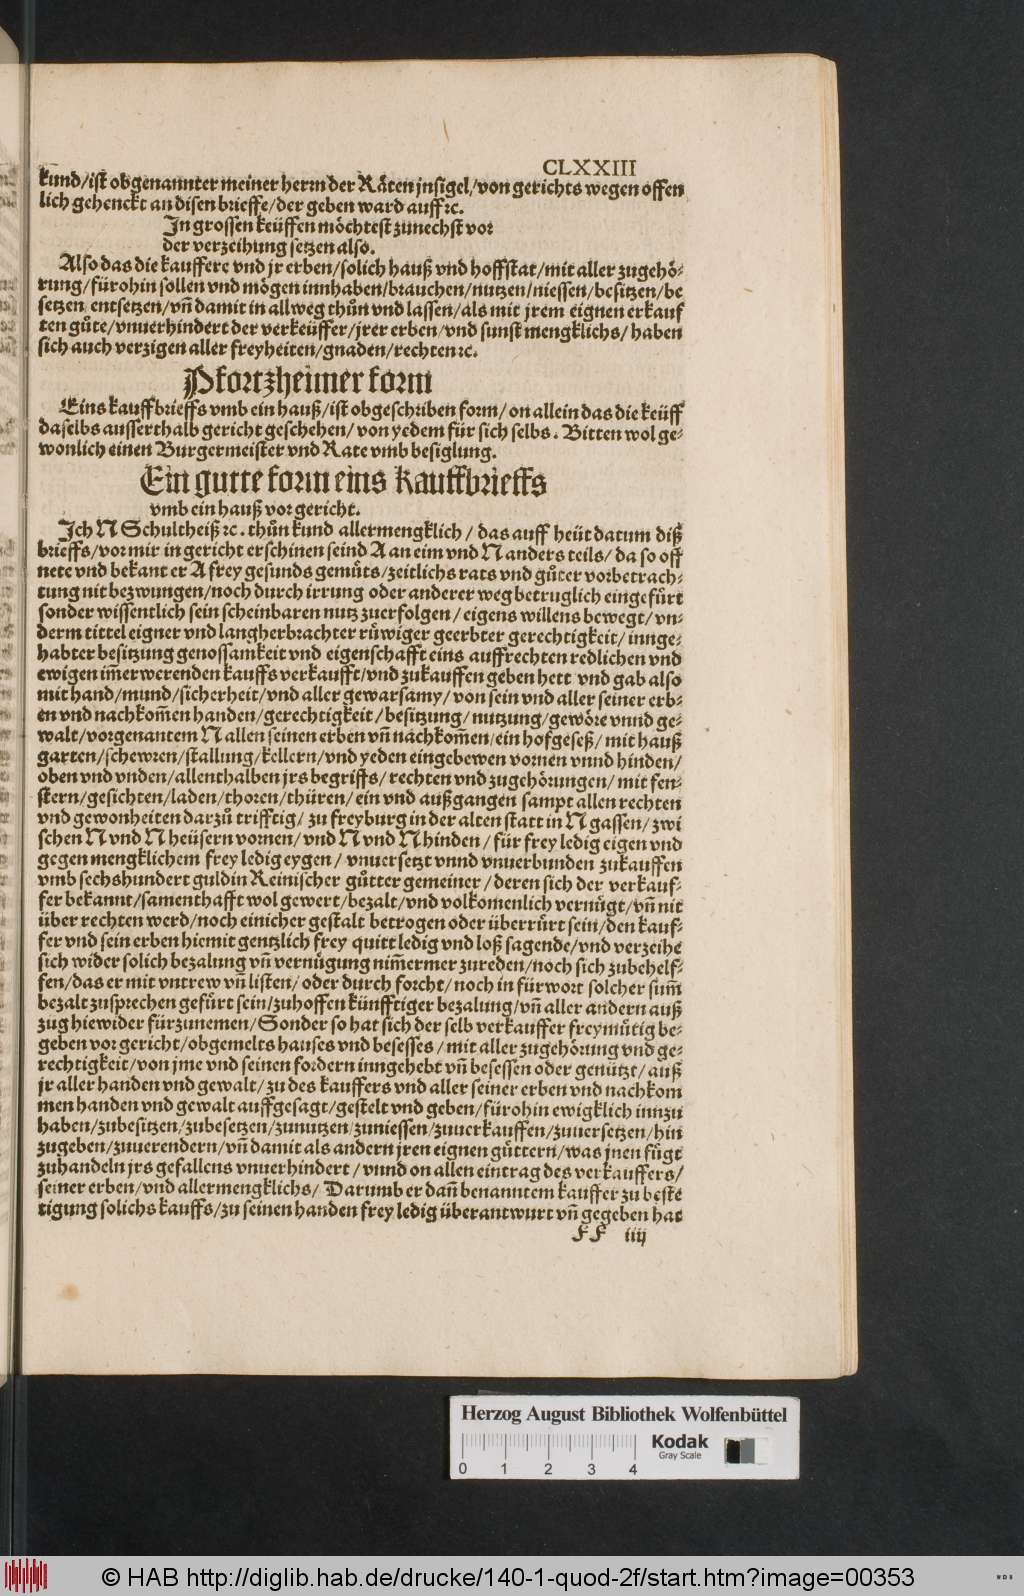 CLXXIII
kund/ist obgenannter meiner herrn der Räten jnsigel/von gerichts wegen offen
lich gehenckt an disen brieffe/der geben ward auff ꝛc.
In grossen keüffen möchtest zunechst vor
der verzeihung setzen also.
Also das die kauffere vnd jr erben/solich hauß vnd hoffstat/mit aller zugehö⸗
rung/fürohin sollen vnd mögen innhaben/brauchen/nutzen/niessen/besitzen/be
setzen/entsetzen/vñ damit in allweg thůn vnd lassen/als mit jrem eignen erkauf
ten gůte/vnuerhindert der verkeüffer/jrer erben/vnd sunst mengklichs/haben
sich auch verzigen aller freyheiten/gnaden/rechten ꝛc.
Pfortzheimer form
Eins kauffbrieffs vmb ein hauß/ist obgeschriben form/on allein das die keüff
daselbs ausserthalb gericht geschehen/von yedem für sich selbs. Bitten wol ge⸗
wonlich einen Burgermeister vnd Rate vmb besiglung.
Ein gutte form eins Kauffbrieffs
vmb ein hauß vor gericht.
Ich N Schultheiß ꝛc. thůn kund allermengklich/das auff heüt datum diß
brieffs/vor mir in gericht erschinen seind A an eim vnd N anders teils/da so off
nete vnd bekant er A frey gesunds gemüts/zeitlichs rats vnd gůter vorbetrach⸗
tung nit bezwungen/noch durch irrung oder anderer weg betruglich eingefürt
sonder wissentlich sein scheinbaren nutz zuerfolgen/eigens willens bewegt/vn⸗
derm tittel eigner vnd langherbrachter rüwiger geerbter gerechtigkeit/innge⸗
habter besitzung genossamkeit vnd eigenschafft eins auffrechten redlichen vnd
ewigen im̃erwerenden kauffs verkaufft/vnd zukauffen geben hett vnd gab also
mit hand/mund/sicherheit/vnd aller gewarsamy/von sein vnd aller seiner erb⸗
en vnd nachkom̃en handen/gerechtigkeit/besitzung/nutzung/gewöre vnnd ge⸗
walt/vorgenantem N allen seinen erben vñ nachkom̃en/ein hofgeseß/mit hauß
garten/schewren/stallung/kellern/vnd yeden eingebewen vornen vnnd hinden/
oben vnd vnden/allenthalben jrs begriffs/rechten vnd zugehörungen/mit fen⸗
stern/gesichten/laden/thoren/thüren/ein vnd außgangen sampt allen rechten
vnd gewonheiten darzů trifftig/zu freyburg in der alten statt in N gassen/zwi
schen N vnd N heüsern vornen/vnd N vnd N hinden/für frey ledig eigen vnd
gegen mengklichem frey ledig eygen/vnuersetzt vnnd vnuerbunden zukauffen
vmb sechshundert guldin Reinischer gůtter gemeiner/deren sich der verkauf⸗
fer bekannt/samenthafft wol gewert/bezalt/vnd volkomenlich vernügt/vñ nit
über rechten werd/noch einicher gestalt betrogen oder überrürt sein/den kauf⸗
fer vnd sein erben hiemit gentzlich frey quitt ledig vnd loß sagende/vnd verzeihe
sich wider solich bezalung vñ vernügung nim̃ermer zureden/noch sich zubehelf⸗
fen/das er mit vntrew vñ listen/oder durch forcht/noch in fürwort solcher sum̃
bezalt zusprechen gefürt sein/zuhoffen künfftiger bezalung/vñ aller andern auß
zug hiewider fürzunemen/Sonder so hat sich der selb verkauffer freymütig be⸗
geben vor gericht/obgemelts hauses vnd besesses/mit aller zugehörung vnd ge⸗
rechtigkeit/von jme vnd seinen fordern inngehebt vñ besessen oder genützt/auß
jr aller handen vnd gewalt/zu des kauffers vnd aller seiner erben vnd nachkom
men handen vnd gewalt auffgesagt/gestelt vnd geben/fürohin ewigklich innzu
haben/zubesitzen/zubesetzen/zunutzen/zuniessen/zuuerkauffen/zuuersetzen/hin
zugeben/zuuerendern/vñ damit als andern jren eignen güttern/was jnen fügt
zuhandeln jrs gefallens vnuerhindert/vnnd on allen eintrag des verkauffers/
seiner erben/vnd allermengklichs/Darumb er dañ benanntem kauffer zu beste
tigung solichs kauffs/zu seinen handen frey ledig überantwurt vñ gegeben hat
FF iiij
Herzog August Bibliothek Wolfenbüttel
Kodak
Gray Scale
0 1 2 3 4
© HAB http://diglib.hab.de/drucke/140-1-quod-2f/start.htm?image=00353